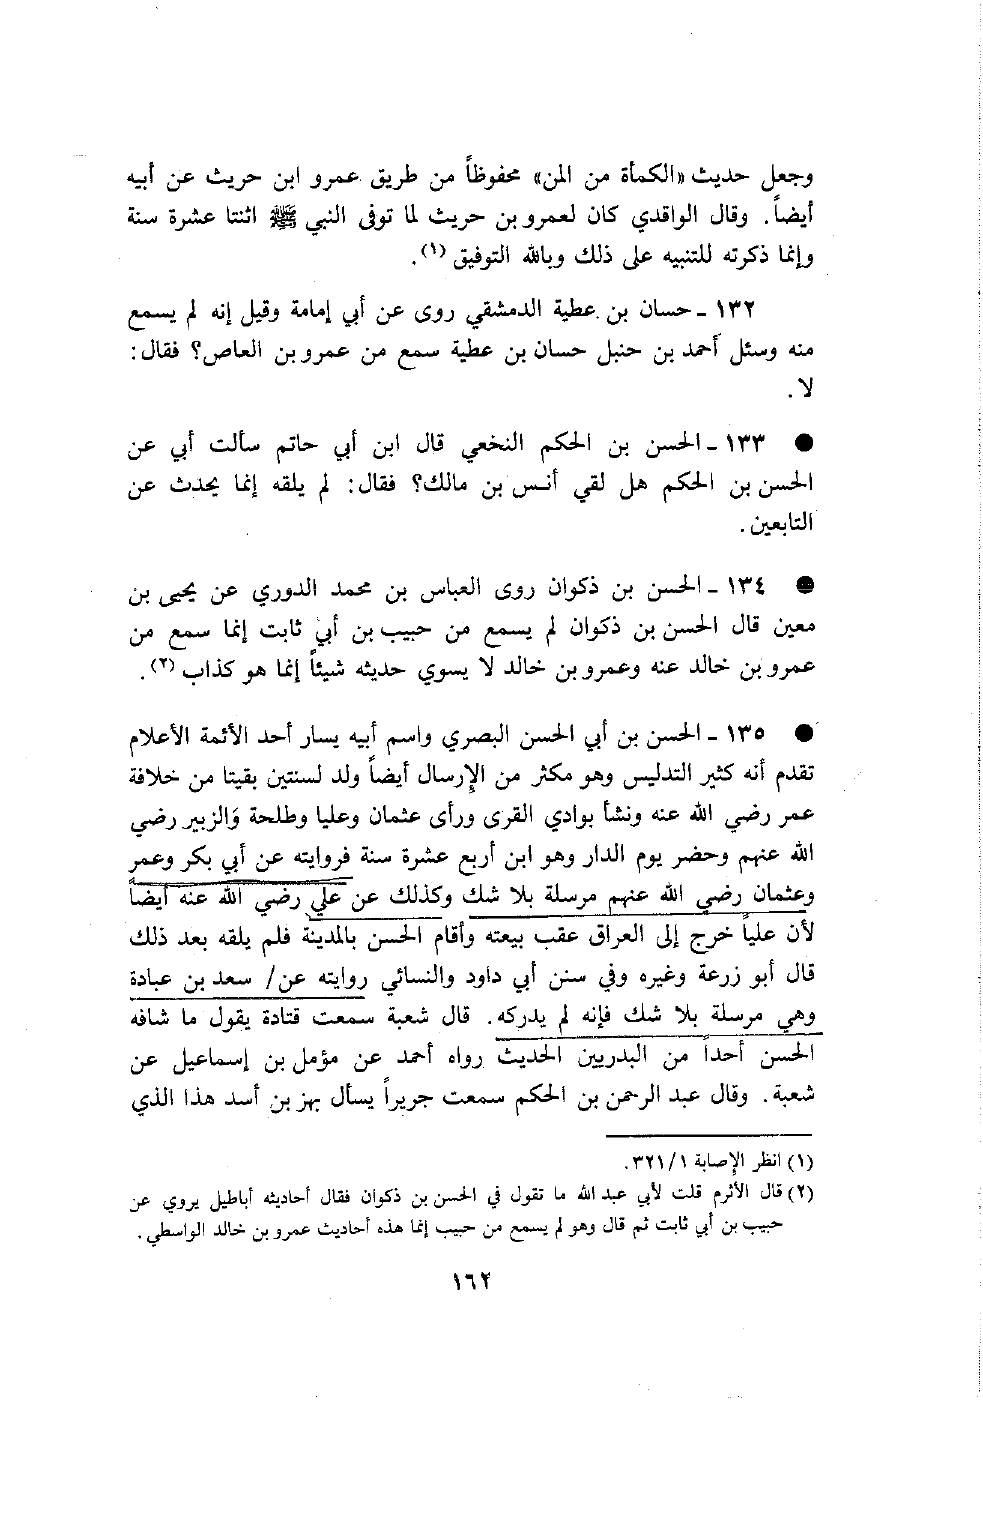 وجعل حديث «الكمأة من المن» محفوظاً من طريق عمرو ابن حريث عن أبيه
أيضاً. وقال الواقدي كان لعمرو بن حريث لما توفى النبي ﷺ اثنتا عشرة سنة
وإنما ذكرته للتنبيه على ذلك وبالله التوفيق (١).
١٣٢ - حسان بن عطية الدمشقي روى عن أبي إمامة وقيل إنه لم يسمع
منه وسئل أحمد بن حنبل حسان بن عطية سمع من عمرو بن العاص؟ فقال:
لا.
● ١٣٣ - الحسن بن الحكم النخعي قال ابن أبي حاتم سألت أبي عن
الحسن بن الحكم هل لقي أنس بن مالك؟ فقال: لم يلقه إنما يحدث عن
التابعين.
● ١٣٤ - الحسن بن ذكوان روى العباس بن محمد الدوري عن يحيى بن
معين قال الحسن بن ذكوان لم يسمع من حبيب بن أبي ثابت إنما سمع من
عمرو بن خالد عنه وعمرو بن خالد لا يسوي حديثه شيئاً إنما هو كذاب (٢).
● ١٣٥ - الحسن بن أبي الحسن البصري واسم أبيه يسار أحد الأئمة الأعلام
تقدم أنه كثير التدليس وهو مكثر من الإرسال أيضاً ولد لسنتين بقيتا من خلافة
عمر رضي الله عنه ونشأ بوادي القرى ورأى عثمان وعليا وطلحة والزبير رضي
الله عنهم وحضر يوم الدار وهو ابن أربع عشرة سنة فروايته عن أبي بكر وعمر
وعثمان رضي الله عنهم مرسلة بلا شك وكذلك عن علي رضي الله عنه أيضاً
لأن علياً خرج إلى العراق عقب بيعته وأقام الحسن بالمدينة فلم يلقه بعد ذلك
قال أبو زرعة وغيره وفي سنن أبي داود والنسائي روايته عن/ سعد بن عبادة
وهي مرسلة بلا شك فإنه لم يدركه. قال شعبة سمعت قتادة يقول ما شافه
الحسن أحداً من البدريين الحديث رواه أحمد عن مؤمل بن إسماعيل عن
شعبة. وقال عبد الرحمن بن الحكم سمعت جريراً يسأل بهز بن أسد هذا الذي
(١) انظر الإصابة ٣٢١/١.
(٢) قال الأثرم قلت لأبي عبد الله ما تقول في الحسن بن ذكوان فقال أحاديثه أباطيل يروي عن
حبيب بن أبي ثابت ثم قال وهو لم يسمع من حبيب إنما هذه أحاديث عمرو بن خالد الواسطي.
١٦٢